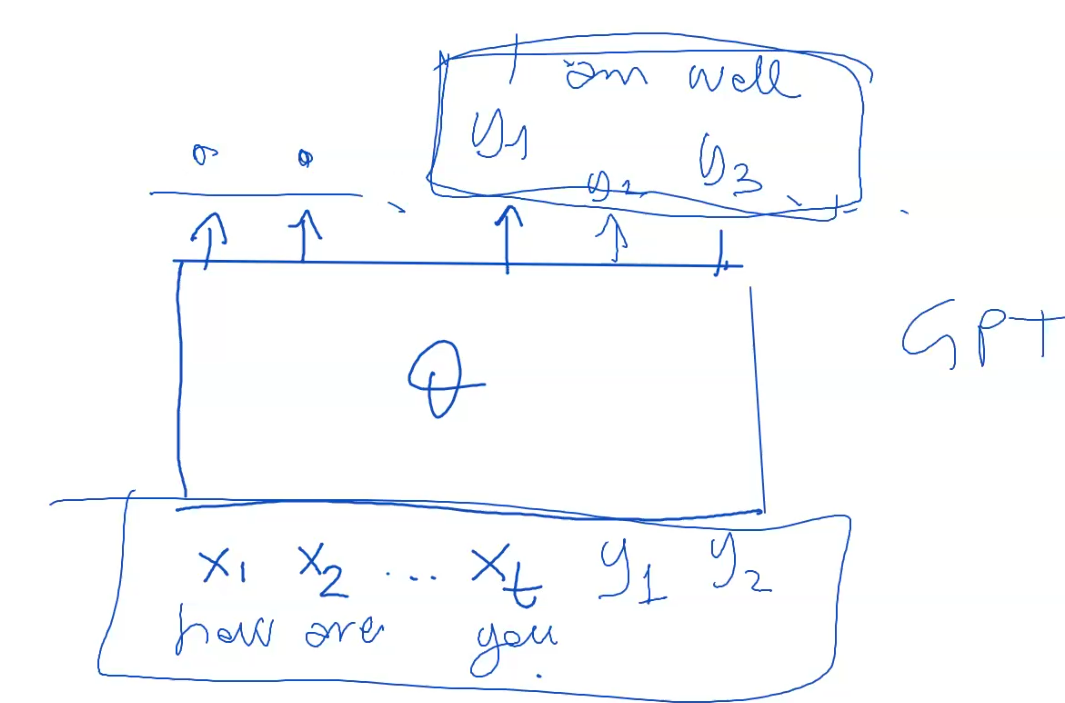 I am well
y1 y2 y3
GPT
θ
x1 x2 ... xt y1 y2
how are you